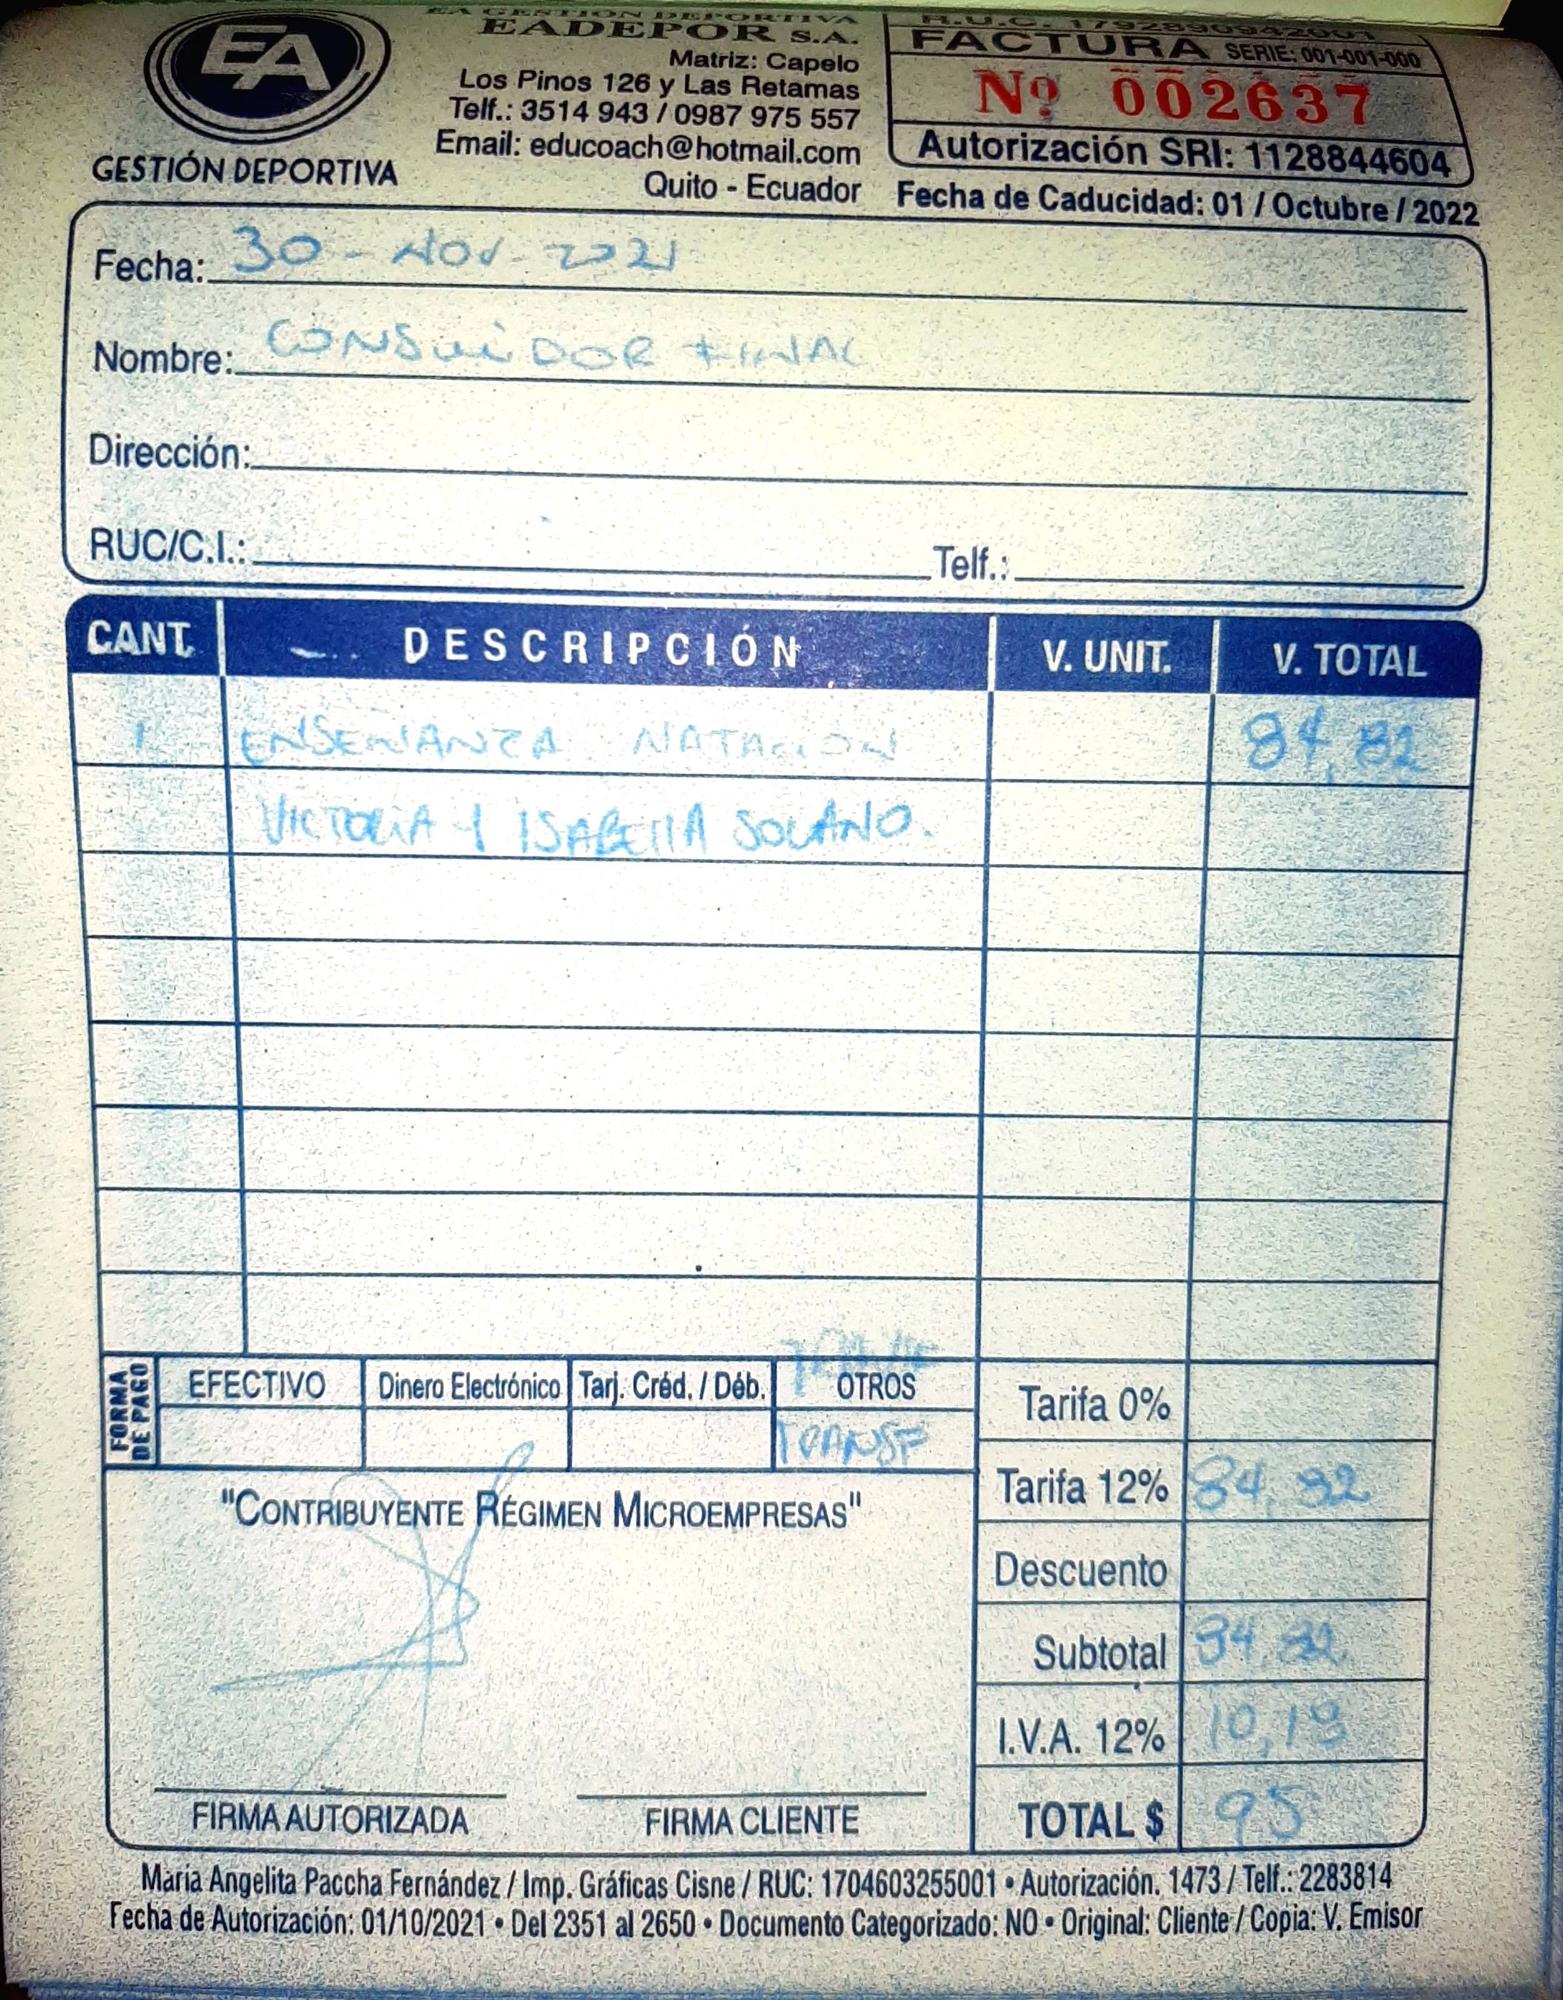 EA
GESTIÓN DEPORTIVA
EA GESTIÓN DEPORTIVA
EADEPOR S.A.
Matriz: Capelo
Los Pinos 126 y Las Retamas
Telf.: 3514 943 / 0987 975 557
Email: educoach@hotmail.com
Quito - Ecuador
R.U.C. 1792890942001
FACTURA SERIE: 001-001-000
Nº 002637
Autorización SRI: 1128844604
Fecha de Caducidad: 01 / Octubre / 2022
Fecha: 30 - NOV - 2021
Nombre: CONSUMIDOR FINAL
Dirección:
RUC/C.I.: Telf.:
CANT. DESCRIPCIÓN V. UNIT. V. TOTAL
1 ENSEÑANZA NATACION 84,82
VICTORIA Y ISABELLA SOLANO.
FORMA DE PAGO
EFECTIVO Dinero Electrónico Tarj. Créd. / Déb. OTROS
TRANSF
Tarifa 0%
Tarifa 12% 84,82
Descuento
Subtotal 84,82
I.V.A. 12% 10,18
TOTAL $ 95
"CONTRIBUYENTE RÉGIMEN MICROEMPRESAS"
FIRMA AUTORIZADA FIRMA CLIENTE
María Angelita Paccha Fernández / Imp. Gráficas Cisne / RUC: 1704603255001 • Autorización. 1473 / Telf.: 2283814
Fecha de Autorización: 01/10/2021 • Del 2351 al 2650 • Documento Categorizado: NO • Original: Cliente / Copia: V. Emisor